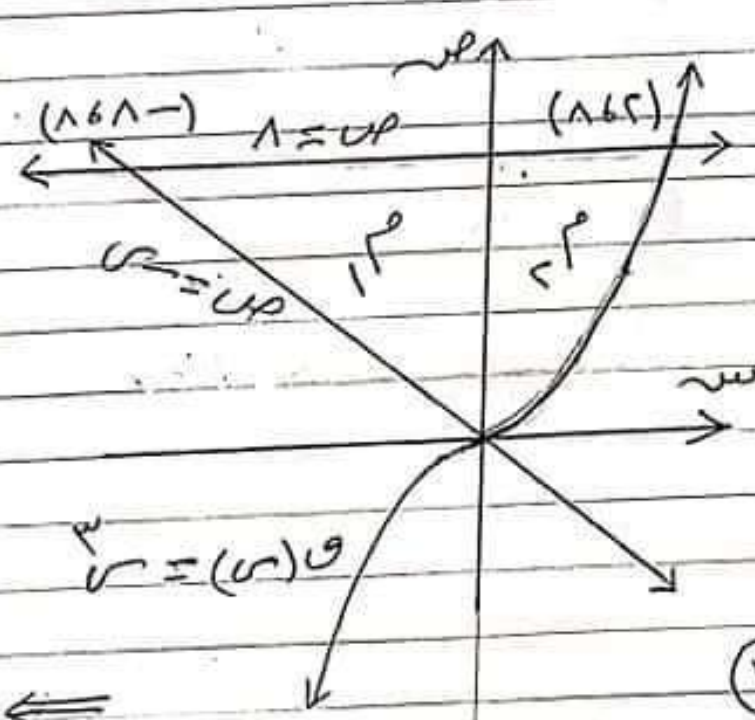 ص
(-٨،٨)
ص = ٨
(٢،٨)
ص = -س
م١
م٢
س
ق(س) = س٣